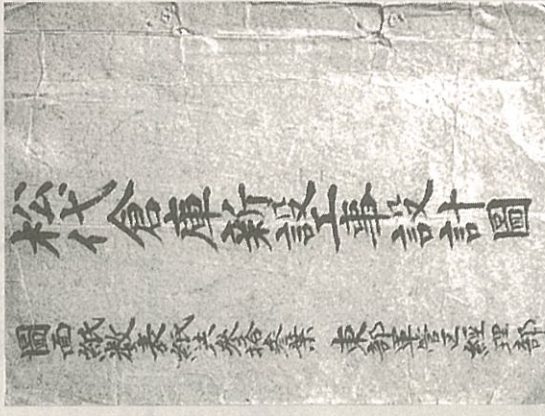 松代倉庫新設工事設計圖
圖面紙數表紙共参拾壹葉 東部軍管区経理部